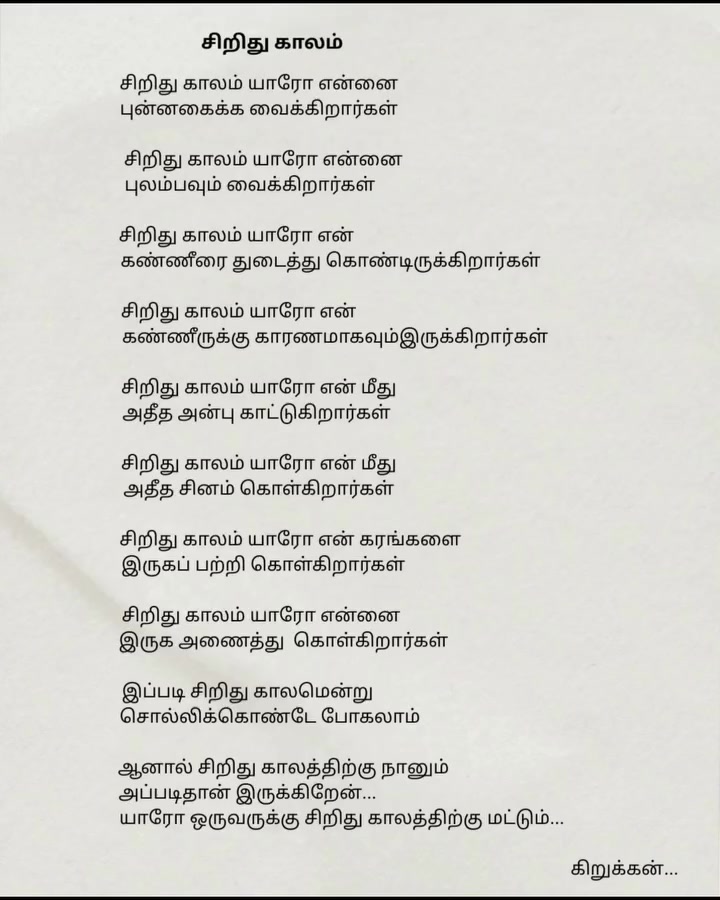 சிறிது காலம்
சிறிது காலம் யாரோ என்னை
புன்னகைக்க வைக்கிறார்கள்
சிறிது காலம் யாரோ என்னை
புலம்பவும் வைக்கிறார்கள்
சிறிது காலம் யாரோ என்
கண்ணீரை துடைத்து கொண்டிருக்கிறார்கள்
சிறிது காலம் யாரோ என்
கண்ணீருக்கு காரணமாகவும்இருக்கிறார்கள்
சிறிது காலம் யாரோ என் மீது
அதீத அன்பு காட்டுகிறார்கள்
சிறிது காலம் யாரோ என் மீது
அதீத சினம் கொள்கிறார்கள்
சிறிது காலம் யாரோ என் கரங்களை
இருகப் பற்றி கொள்கிறார்கள்
சிறிது காலம் யாரோ என்னை
இருக அணைத்து கொள்கிறார்கள்
இப்படி சிறிது காலமென்று
சொல்லிக்கொண்டே போகலாம்
ஆனால் சிறிது காலத்திற்கு நானும்
அப்படிதான் இருக்கிறேன்...
யாரோ ஒருவருக்கு சிறிது காலத்திற்கு மட்டும்...
கிறுக்கன்...